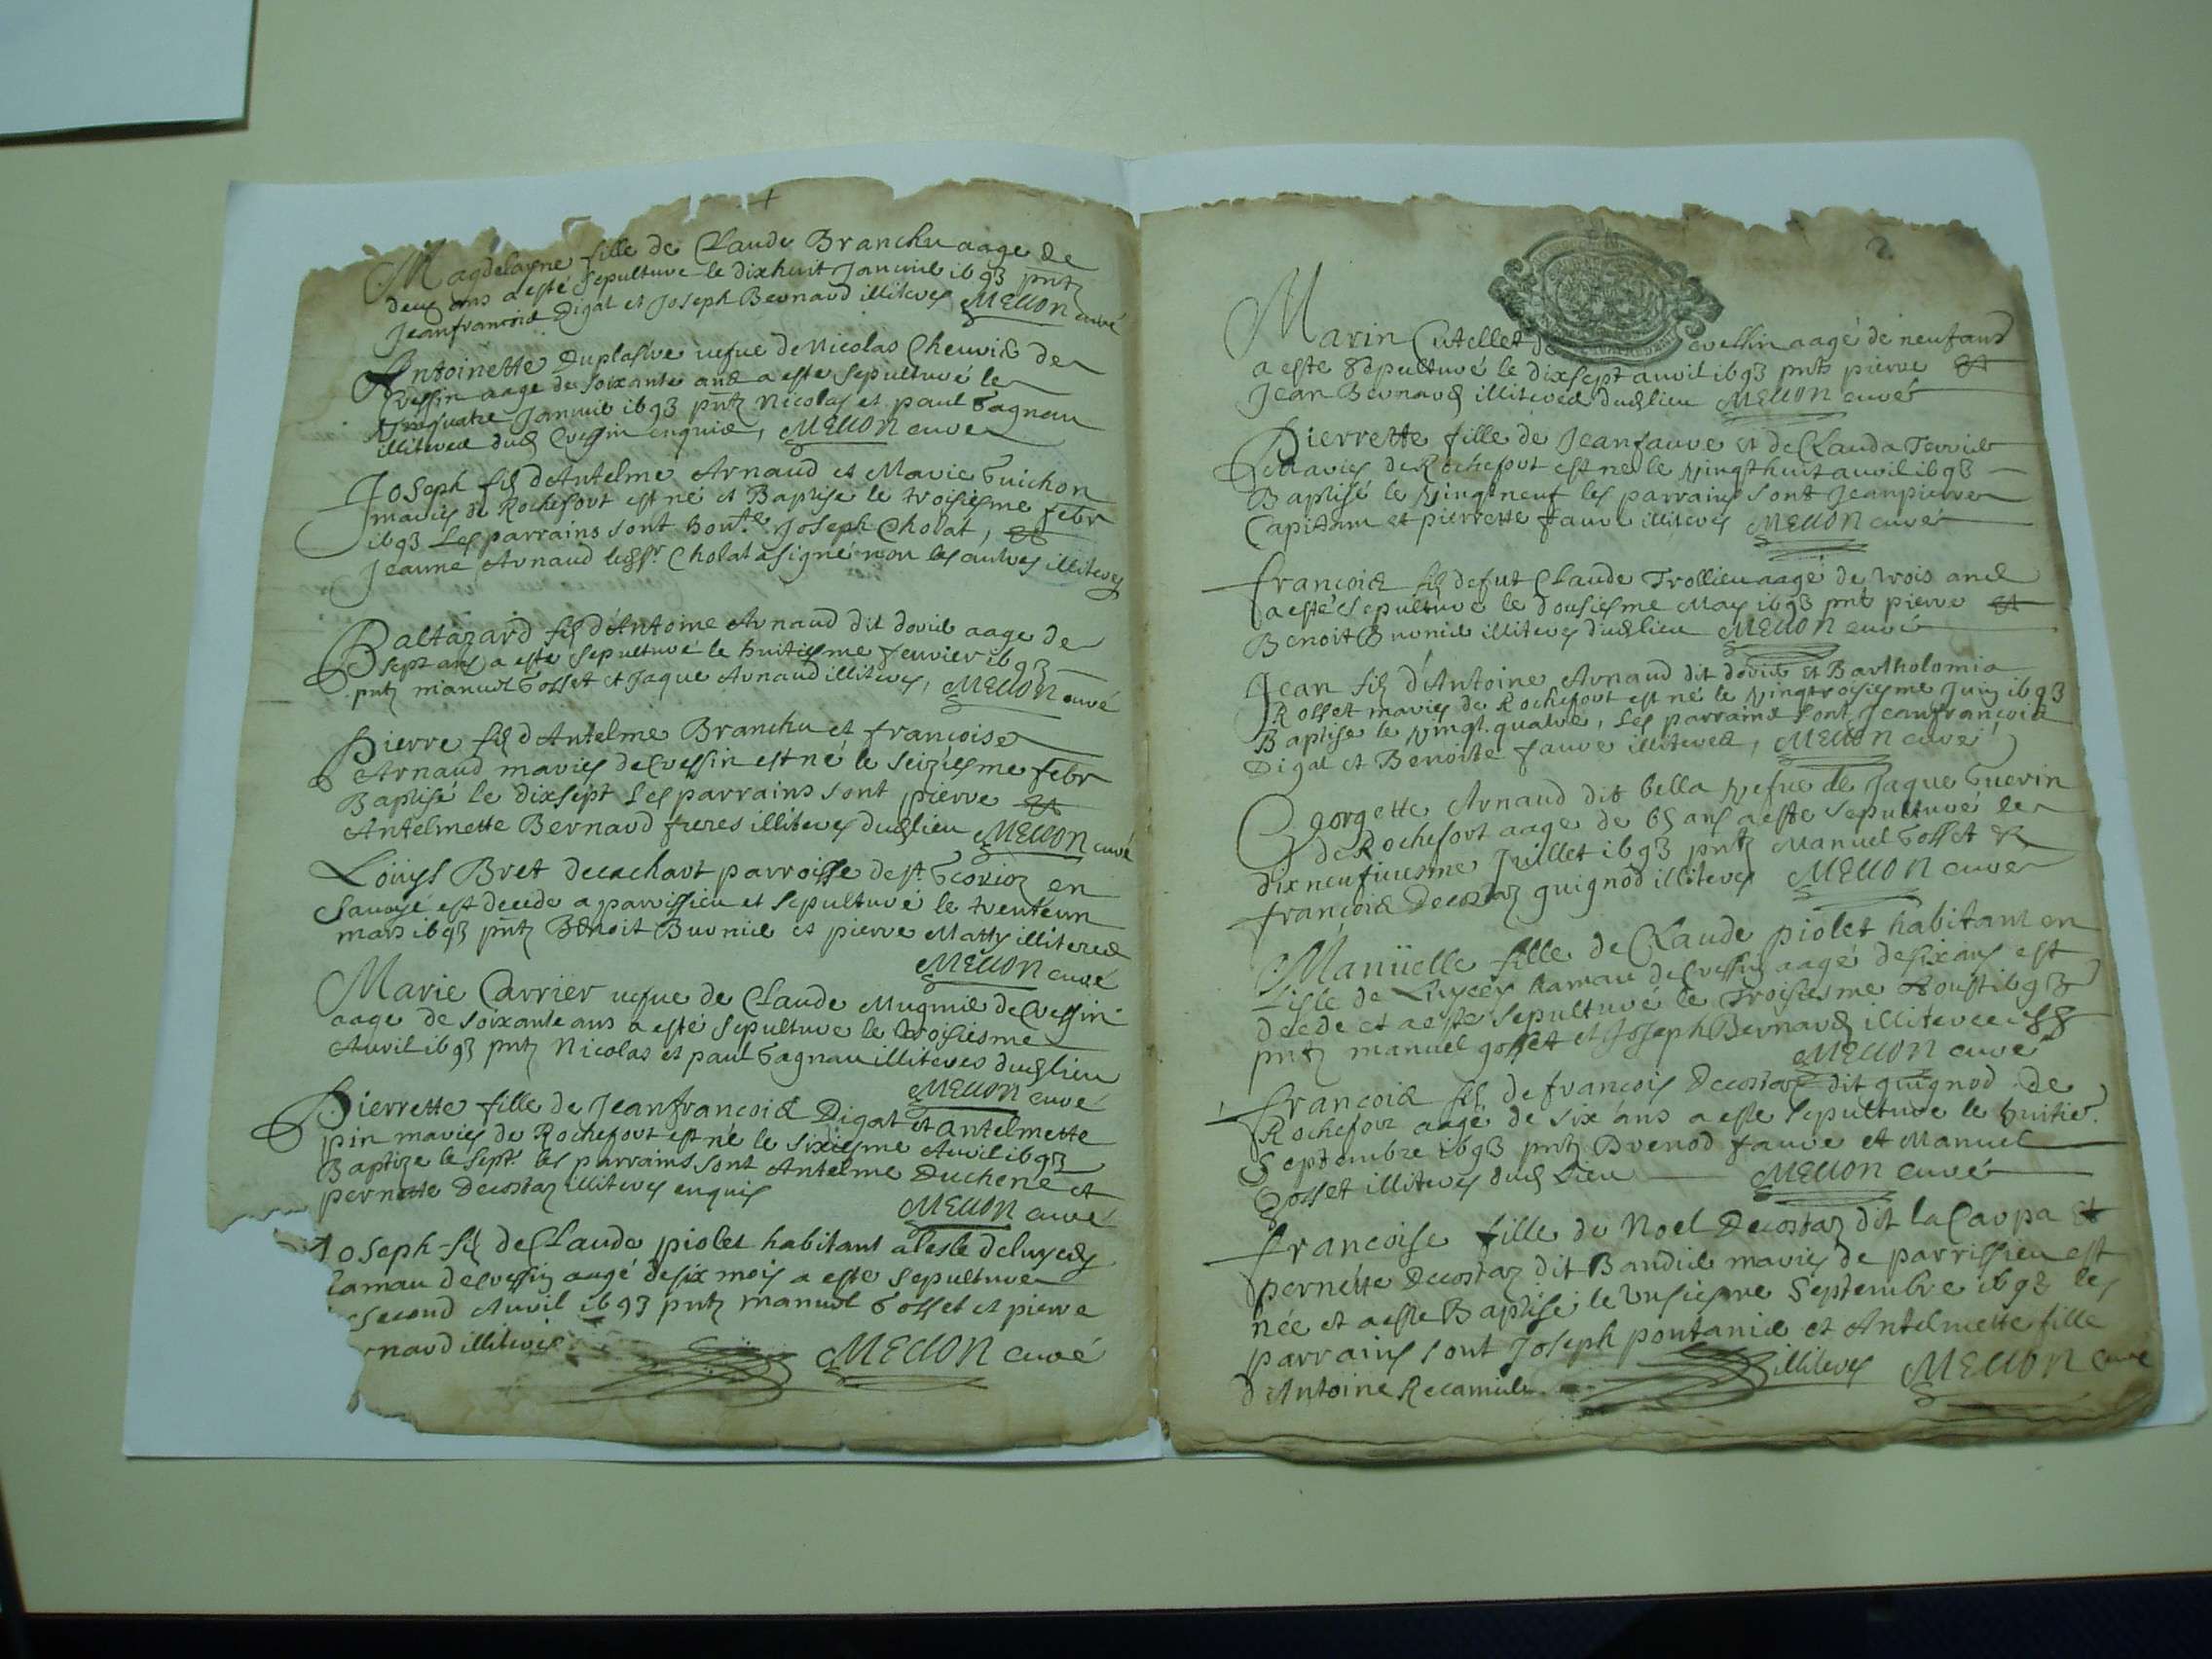 Magdelayne fille de Claude Branchu aage de
deux ans a esté sepulture le dixhuit Januier 1693 pntz
Jeanfrancois Digat et Joseph Bernard illiteres MELLON curé
Antoinette Duplastre uefue de Nicolas Cheurier de
Cressin aage de soixante ans a este sepulturé le
vingtquatre Januier 1693 pntz Nicolas et paul Gagneau
illiteres dud Cressin enquis, MELLON cure
Joseph fils d'Antelme Arnaud et Marie Guichon
mariés de Rochefort est né et Baptisé le troisiesme febr
1693 Les parrains sont hon.te Joseph Cholat, et
Jeanne Arnaud led Sr. Cholat a signé non les autres illiteres
Baltazard fils d'Antoine Arnaud dit dorier aage de
sept ans a este sepulturé le huitiesme feurier 1693
pntz manuel Gosset et Jaque Arnaud illiteres, MELLON curé
Pierre fils d'Antelme Branchu et francoise
Arnaud mariés de Cressin est né le seiziesme febr
Baptisé le dixsept Les parrains sont pierre et
Antelmette Bernard freres illiteres dud lieu MELLON curé
Louys Bret de cachart parroisse de st. en
Sauoye est decede a parrissieu et sepulturé le trenteun
mars 1693 pntz Benoit Burnier et pierre Matty illiteres
MELLON curé
Marie Carrier uefue de Claude Mugnier de Cressin
aage de soixante ans a esté sepulture le troisiesme
Auril 1693 pntz Nicolas et paul Gagneau illiteres dud lieu
MELLON curé
Pierrette fille de Jeanfrancois Digat et antelmette
pin mariés de Rochefort est né le sixiesme Auril 1693
Baptize le sept. les parrains sont Antelme Duchene et
pernette Decostaz illiteres enquis MELLON curé
Joseph fils de Claude piolet habitant a lesle de
hamau de Cressin aagé de six mois a este sepulture
second Auril 1693 pntz manuel Gosset et pierre
rnard illiteres MELLON curé
2
Marin Cutellet de Cressin aagé de neuf ans
a este sepulturé le dixsept auril 1693 pntz pierre et
Jean Bernard illiteres dud lieu MELLON curé
Pierrette fille de Jean faure et de Clauda Terrier
mariés de Rochefort est né le vingthuit auril 1693
Baptisé le vingtneuf les parrains sont Jeanpierre
Capitan et pierrette faure illiteres MELLON curé
francois fils de fut Claude Trollieu aagé de trois ans
a esté sepulture le dousiesme May 1693 pntz pierre et
Benoit Burnier illiteres dud lieu MELLON curé
Jean fils d'Antoine Arnaud dit dorier et Bartholomia
Rosset mariés de Rochefort est né le vingtroisiesme Juin 1693
Baptise le vingt.quatre, Les parrains sont Jeanfrancois
Digat et Benoite faure illiteres, MELLON curé
Georgette Arnaud dit bella vefue de Jaque Guerin
de Rochefort aage de 65 ans a este sepulturé le
dixneufuiesme Juillet 1693 pntz Manuel Gosset et
francois Decostaz guignod illiteres MELLON cure
Manüelle fille de Claude piolet habitant en
Lisle de hamau de Cressin aagé de six ans est
decede et a este sepulturé le Troisiesme Aoust 1693
pntz manuel gosset et Joseph Bernard illiteres
MELLON curé
francois fils de francois Decostaz dit guignod de
Rochefort aagé de six ans a este sepulture le huitie.
Septembre 1693 pntz faure et Manuel
Gosset illiteres dud Lieu MELLON curé
francoise fille de Noel Decostaz dit la Carpa et
pernette Decostaz dit Bandier mariés de parrissieu est
née et a este Baptisé le unsiesme Septembre 1693 les
parrains sont Joseph pontanier et Antelmette fille
d'Antoine Recamier illiteres MELLON curé